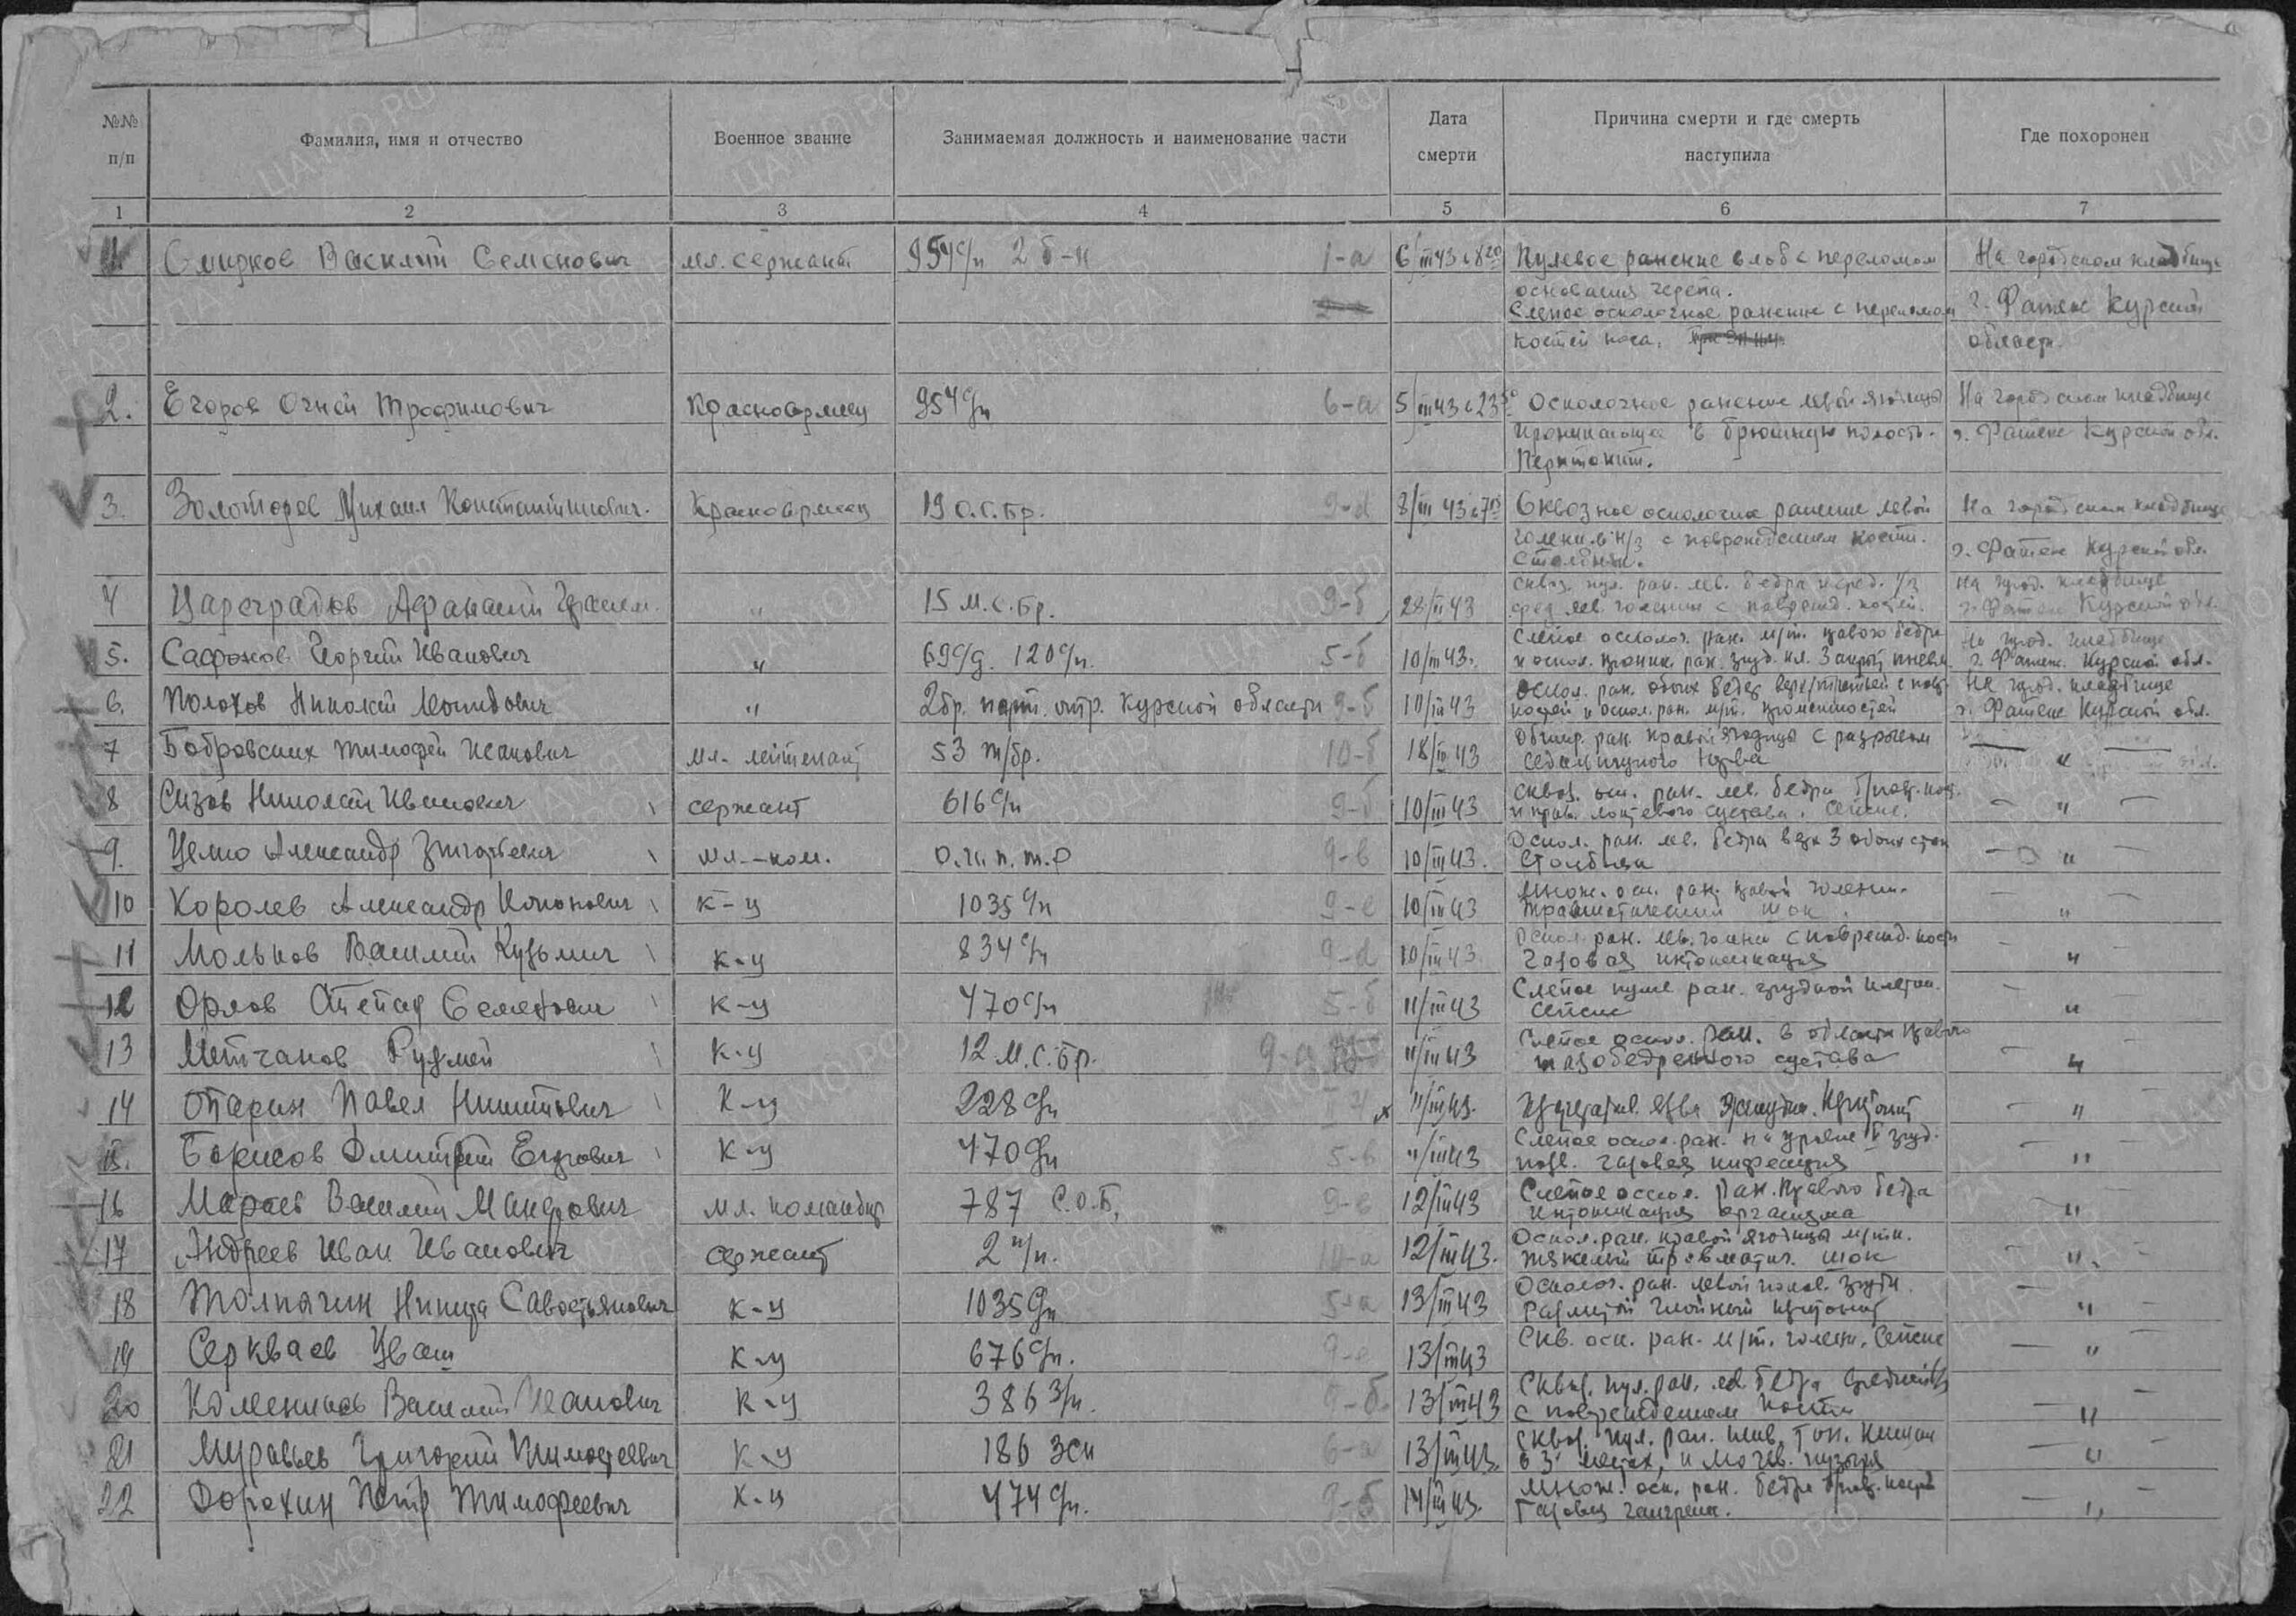 №№ п/п
Фамилия, имя и отчество
Военное звание
Занимаемая должность и наименование части
Дата смерти
Причина смерти и где смерть наступила
Где похоронен
1 2 3 4 5 6 7
1 Василий Семенович мл. сержант 954 с/п 2 б-н 1-а 6/III 43 Пулевое ранение в лоб с переломом На городском кладбище
основания черепа.
Слепое осколочное ранение с переломом г. Фатеж Курской
костей носа. области.
2. Егоров Трофимович Красноармеец 954 с/п 6-а 5/III 43 Осколочное ранение левой ягодицы На городском кладбище
проникающее в брюшную полость. г. Фатеж Курской обл.
Перитонит.
3. Михаил Константинович. Красноармеец 19 о.с.бр. 9-d 8/III 43 Сквозное осколочное ранение левой На городском кладбище
голени в н/з с повреждением кости. г. Фатеж Курской обл.
Столбняк.
4 Цареградов Афанасий " 15 м.с.бр. 9-б 28/II 43 сквоз. пул. ран. лев. бедра На город. кладбище
лев. голени с поврежд. костей. г. Фатеж Курской обл.
5. Сафонов Георгий Иванович " 69 с/д. 120 с/п. 5-б 10/III 43. Слепое осколоч. ран. м/т. правого бедра На город. кладбище
и оскол. проник. ран. груд. кл. г. Фатеж. Курской обл.
6. Полохов Николай " 2 бр. парт. отр. Курской области 9-б 10/III 43 Оскол. ран. обоих бедер с повр. На город. кладбище
костей и оскол. ран. м/т. промежностей г. Фатеж Курской обл.
7 Бобровских Тимофей Иванович мл. лейтенант 53 т/бр. 10-б 18/II 43 Обшир. ран. правой ягодицы с разрывом — " —
седалищного нерва
8 Сизов Николай Иванович сержант 616 с/п 9-б 10/III 43 Сквоз. оск. ран. лев. бедра — " —
и прав. локтевого сустава. Сепсис.
9. Александр Григорьевич мл.-ком. 9-в 10/III 43. Оскол. ран. лев. бедра — " —
Столбняк
10 Королев Александр к-ц 1035 с/п 9-е 10/III 43 Множ. оск. ран. правой голени. — " —
Травматический шок.
11 Мольков Василий Кузьмич к-ц 834 с/п 9-d 10/III 43. Оскол. ран. лев. голени с поврежд. кости — " —
Газовая интоксикация
12 Орлов Степан Семенович к-ц 470 с/п 5-б 11/III 43 Слепое пулев. ран. грудной клетки. — " —
Сепсис
13 к-ц 12 м.с.бр. 9-а 11/III 43 Слепое оскол. ран. в области правого — " —
тазобедренного сустава
14 Опарин Павел Никитович к-ц 228 с/п 11/III 43. язва желудка. Перитонит — " —
15. Борисов Дмитрий Егорович к-ц 470 с/п 5-в 11/III 43 Слепое оскол. ран. на уровне груд. — " —
позв. газовая инфекция
16 Василий мл. командир 787 С.О.Б. 9-е 12/III 43 Слепое оскол. ран. правого бедра — " —
интоксикация организма
17 Андреев Иван Иванович сержант 2 п/п. 10-а 12/III 43. Оскол. ран. правой ягодицы м/тк. — " —
тяжелый травматич. шок
18 Толпягин Никита Савостьянович к-ц 1035 с/п 5-а 13/III 43 Осколоч. ран. левой полов. груди. — " —
Разлитой гнойный перитонит
19 Серкваев к-ц 676 с/п. 9-е 13/III 43 Скв. оск. ран. м/т. голени. Сепсис — " —
20 Каменников Василий Иванович к-ц 386 3/п. 9-б. 13/III 43 Сквоз. пул. ран. лев. бедра средней — " —
с повреждением кости
21 Муравьев Григорий Тимофеевич к-ц 186 зсп 6-а 13/III 43. Сквоз. пул. ран. жив. тон. кишок — " —
в 3 местах, и моч. пузыря
22 Дорохин Петр Тимофеевич к-ц 474 с/п. 9-б 14/III 43. Множ. оск. ран. бедра — " —
Газовая гангрена.
ЦАМО РФ
ПАМЯТЬ НАРОДА